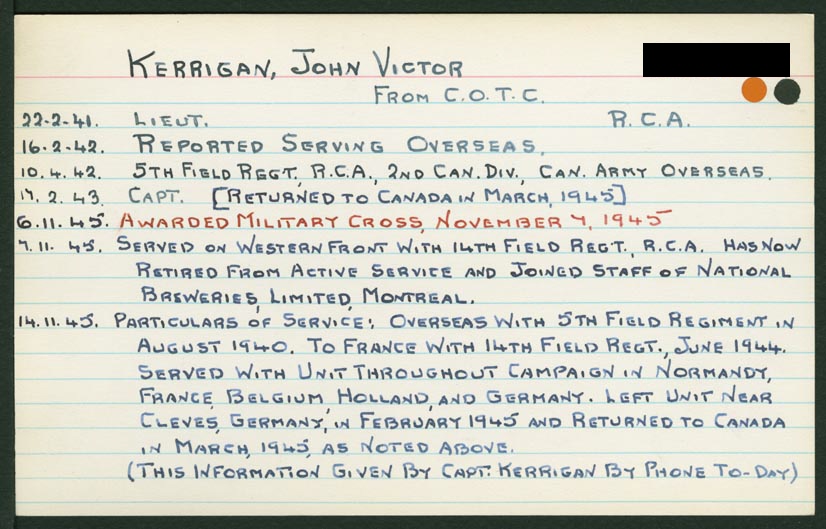 KERRIGAN, JOHN VICTOR
FROM C.O.T.C.
22-2-41. LIEUT. R.C.A.
16.2-42. REPORTED SERVING OVERSEAS.
10.4.42. 5TH FIELD REGT., R.C.A., 2ND CAN. DIV., CAN. ARMY OVERSEAS.
17.2.43. CAPT. [RETURNED TO CANADA IN MARCH, 1945]
6.11.45. AWARDED MILITARY CROSS, NOVEMBER 7, 1945
7.11.45. SERVED ON WESTERN FRONT WITH 14TH FIELD REGT., R.C.A. HAS NOW
RETIRED FROM ACTIVE SERVICE AND JOINED STAFF OF NATIONAL
BREWERIES, LIMITED, MONTREAL.
14.11.45. PARTICULARS OF SERVICE: OVERSEAS WITH 5TH FIELD REGIMENT IN
AUGUST 1940. TO FRANCE WITH 14TH FIELD REGT., JUNE 1944.
SERVED WITH UNIT THROUGHOUT CAMPAIGN IN NORMANDY,
FRANCE, BELGIUM HOLLAND, AND GERMANY. LEFT UNIT NEAR
CLEVES, GERMANY, IN FEBRUARY 1945 AND RETURNED TO CANADA
IN MARCH, 1945, AS NOTED ABOVE.
(THIS INFORMATION GIVEN BY CAPT. KERRIGAN BY PHONE TO-DAY)